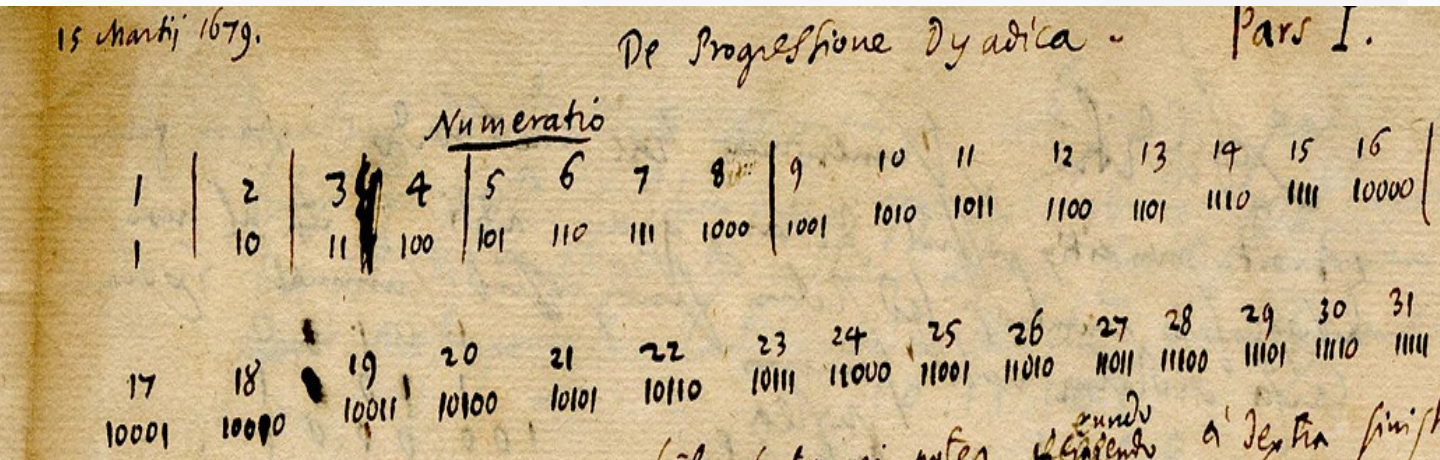 15 Martij 1679. De Progressione Dyadica. Pars I.
Numeratio
1 | 2 | 3 4 | 5 6 7 8 | 9 10 11 12 13 14 15 16 |
1 | 10 | 11 100 | 101 110 111 1000 | 1001 1010 1011 1100 1101 1110 1111 10000 |
17 18 19 20 21 22 23 24 25 26 27 28 29 30 31
10001 10010 10011 10100 10101 10110 10111 11000 11001 11010 11011 11100 11101 11110 11111
à dextra